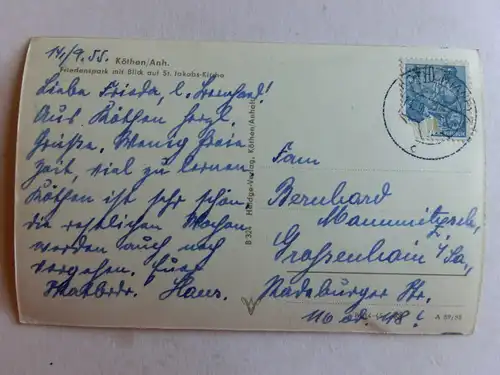 14./9.55. Köthen/Anh.
Friedenspark mit Blick auf St. Jakobs-Kirche
Liebe Frieda, l. Bernhard!
Aus Köthen herzl.
Grüße. Wenig freie
Zeit, viel zu lernen
Köthen ist sehr schön,
die restlichen Wochen
werden auch noch
vergehen. Euer
Hans.
B 324 Heldge-Verlag, Köthen/Anhalt
Fam
Bernhard
Großenhain i/Sa.,
Radeburger Str.
116 od. 118!
A 59/55